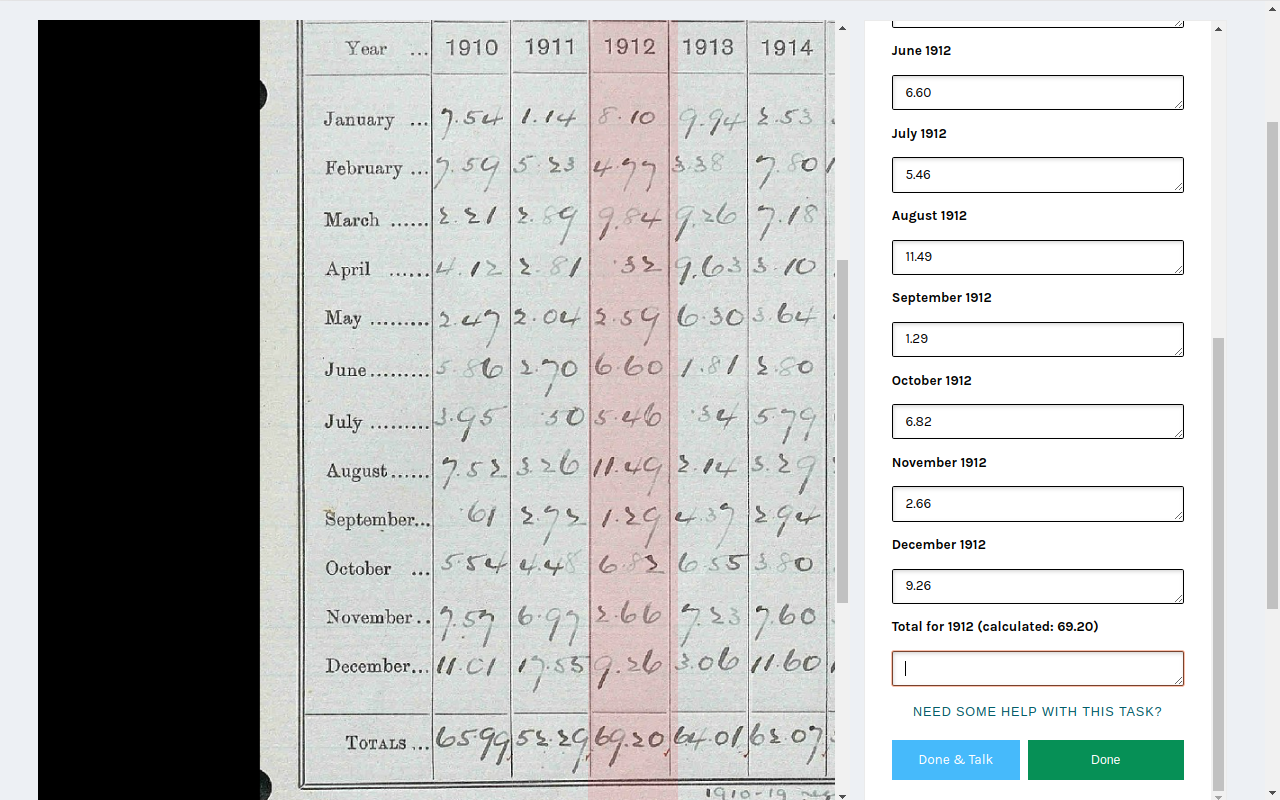 Year ... 1910 1911 1912 1913 1914
January ... 7.54 1.14 8.10 9.94 2.53
February ... 7.59 5.23 4.77 3.38 7.80
March ...... 2.21 2.89 9.84 9.26 7.18
April ...... 4.12 2.81 .32 9.63 3.10
May ......... 2.47 2.04 2.59 6.30 3.64
June......... 5.86 2.70 6.60 1.81 2.80
July ......... 3.95 .50 5.46 .34 5.79
August...... 7.52 3.26 11.49 2.14 3.29
September... .61 2.72 1.29 4.37 2.94
October ... 5.54 4.48 6.82 6.55 3.80
November .. 7.57 6.97 2.66 7.23 7.60
December... 11.01 17.55 9.26 3.06 11.60
Totals ... 65.99 52.29 69.20 64.01 62.07
1910-19
June 1912
6.60
July 1912
5.46
August 1912
11.49
September 1912
1.29
October 1912
6.82
November 1912
2.66
December 1912
9.26
Total for 1912 (calculated: 69.20)
NEED SOME HELP WITH THIS TASK?
Done & Talk
Done